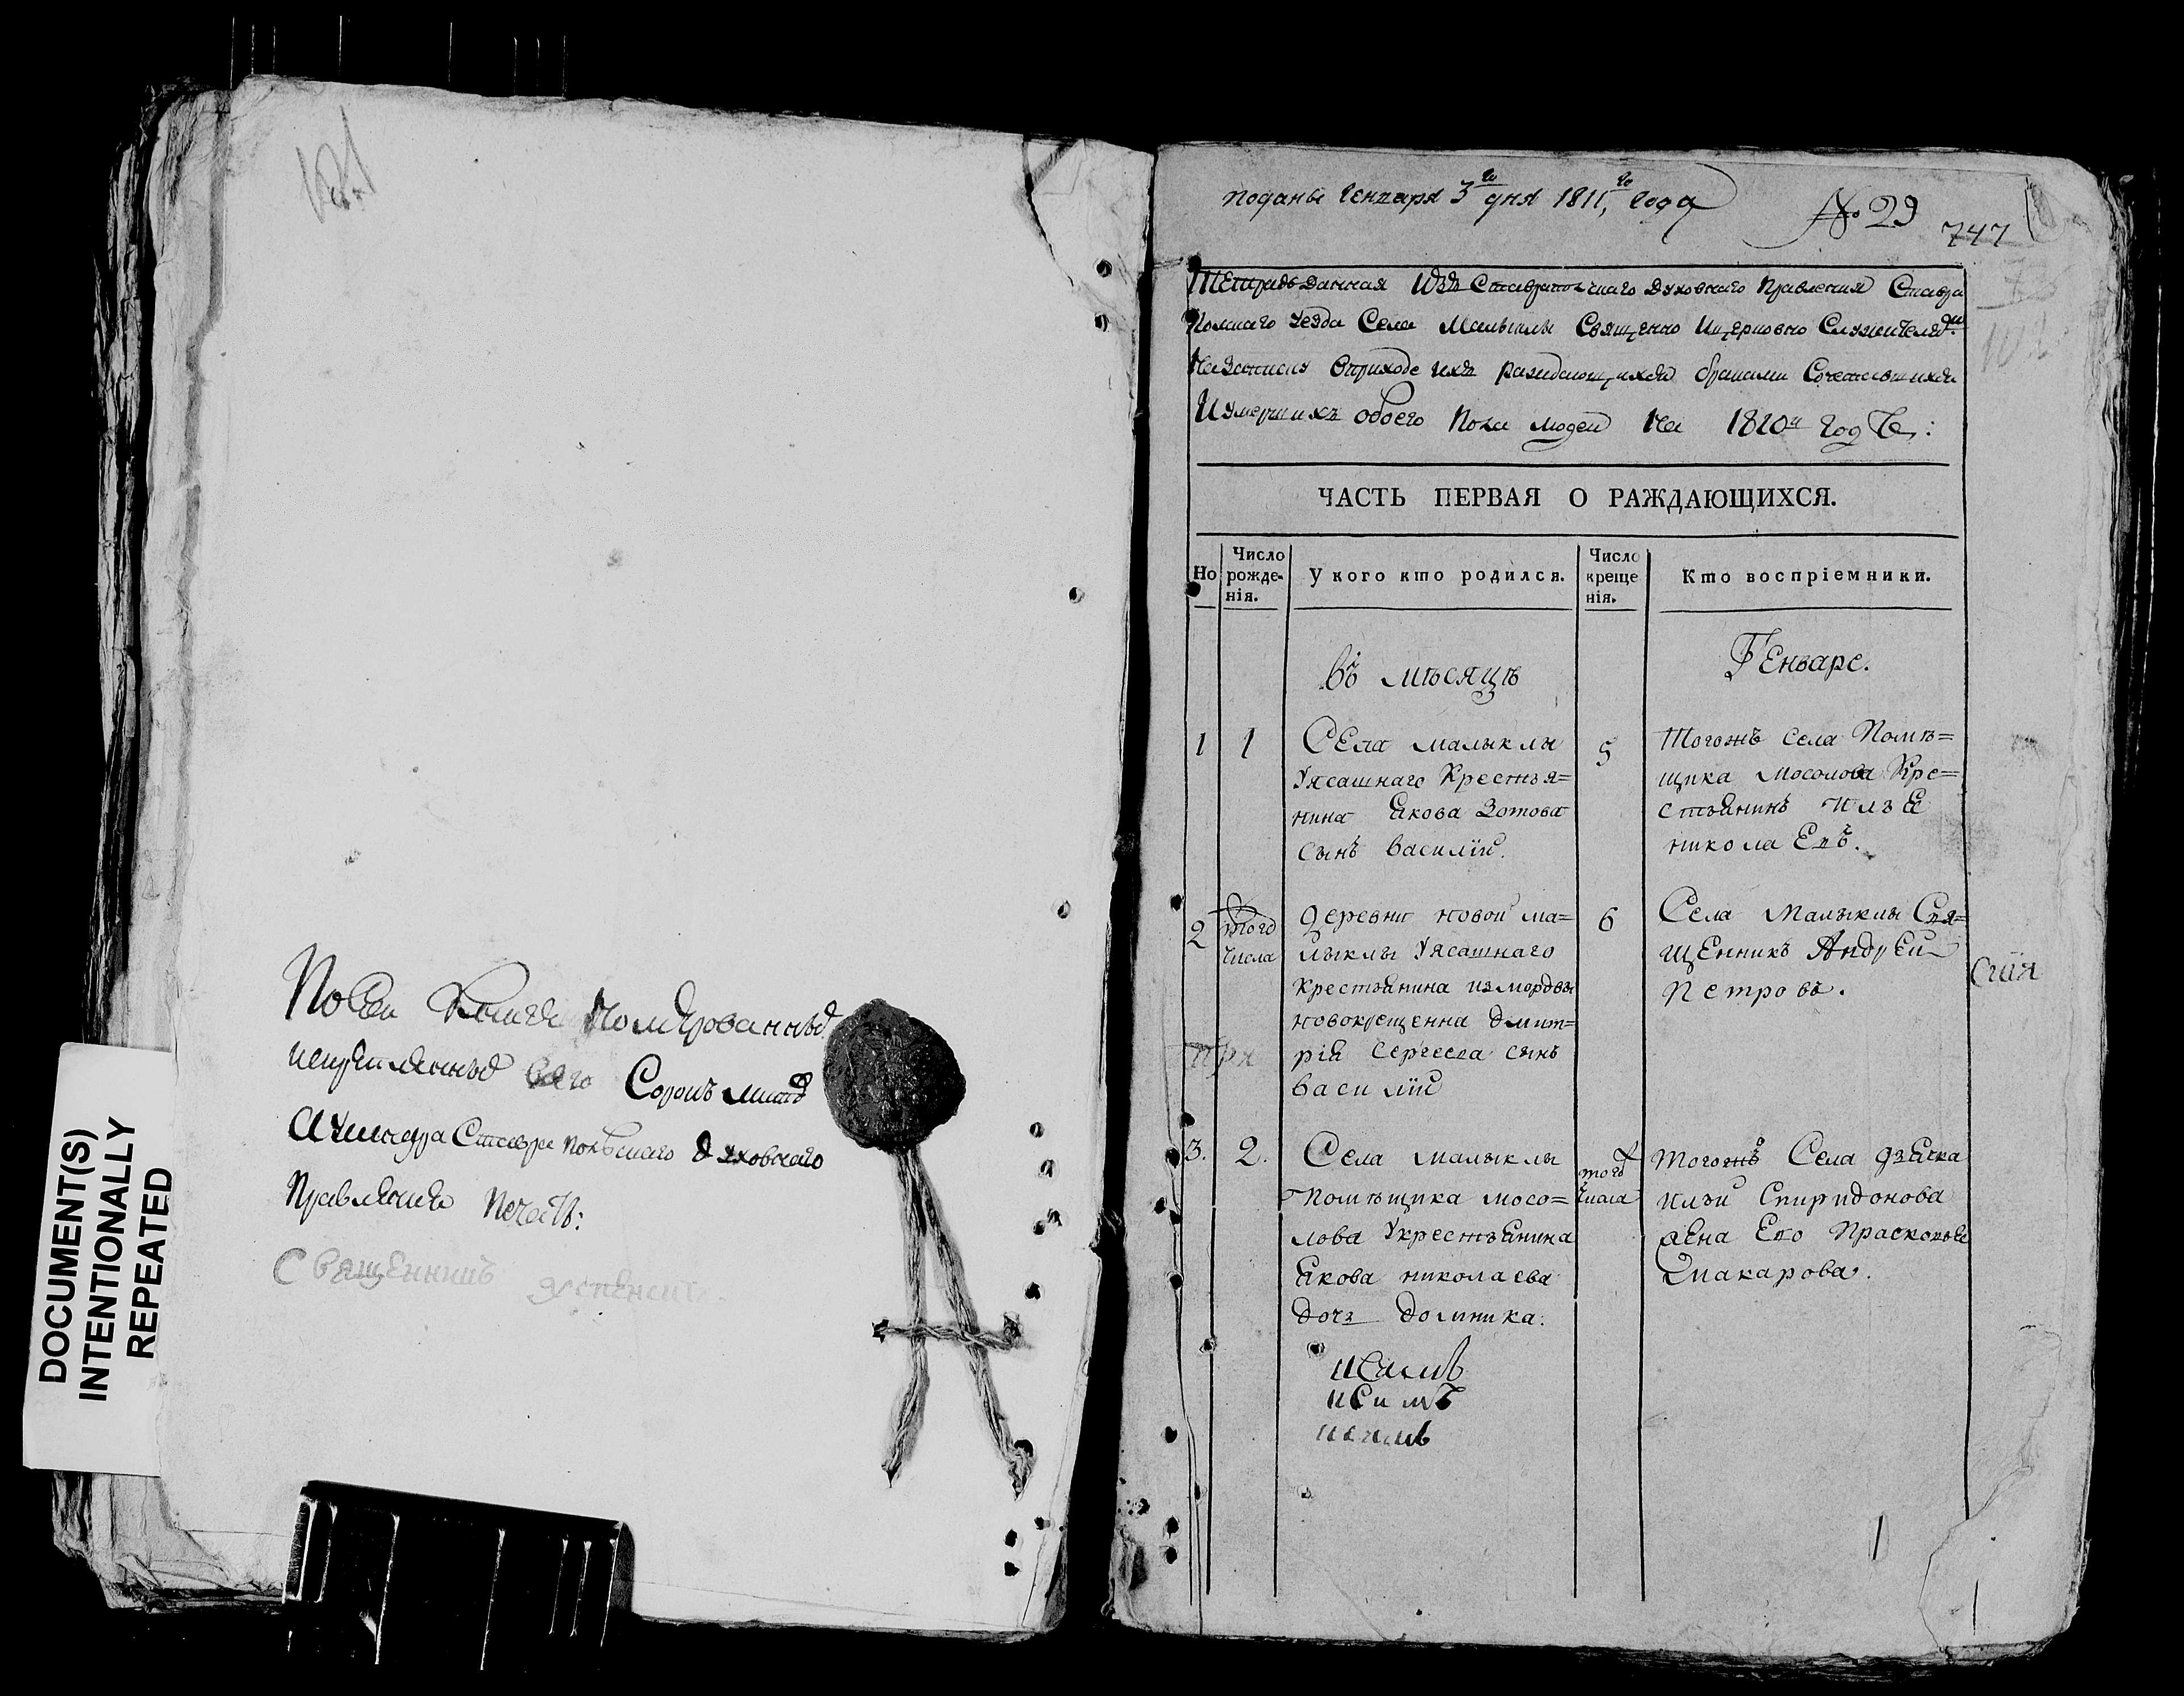 По сей книге номерованныхъ
и скрепленныхъ всего сорокъ листовъ
А у шнура Ставропольскаго духовнаго
Правления печать:
Священникъ
DOCUMENT(S)
INTENTIONALLY
REPEATED
Поданы Генваря 3го дня 1811го года
№ 29
747
Тетрадь данная изъ Ставропольскаго духовнаго Правления Ставро
польскаго уезда Села Малыклы Священно и церковно служителямъ
На записку о приходе ихъ раждающихся браками сочетавшихся
И умершихъ обоего пола людей На 1810й годъ:
ЧАСТЬ ПЕРВАЯ О РАЖДАЮЩИХСЯ.
Но
Число рожде-нія.
У кого кто родился.
Число креще нія.
Кто воспріемники.
въ мѣсяцѣ
Генваре.
1
1
Села малыклы
Уясашнаго Крестья=
нина Якова Зотова
сынъ василій.
5
Тогожъ села Помѣ=
щика мосолова Кре=
стьянинъ Илья
николаевъ.
2
того
числа
деревни новой ма=
лыклы Уясашнаго
крестьянина из мордвы
новокрещенна дмит=
рія сергеева сынъ
василій
6
Села Малыклы Свя=
щенникъ Андрей
Петровъ.
сии
при
3.
2.
Села малыклы
Помѣщика мосо=
лова Укрестьянина
Якова николаева
дочь домника.
того
числа
Тогожъ Села дьячка
ильи Спиридонова
жена Ево Прасковья
макарова.